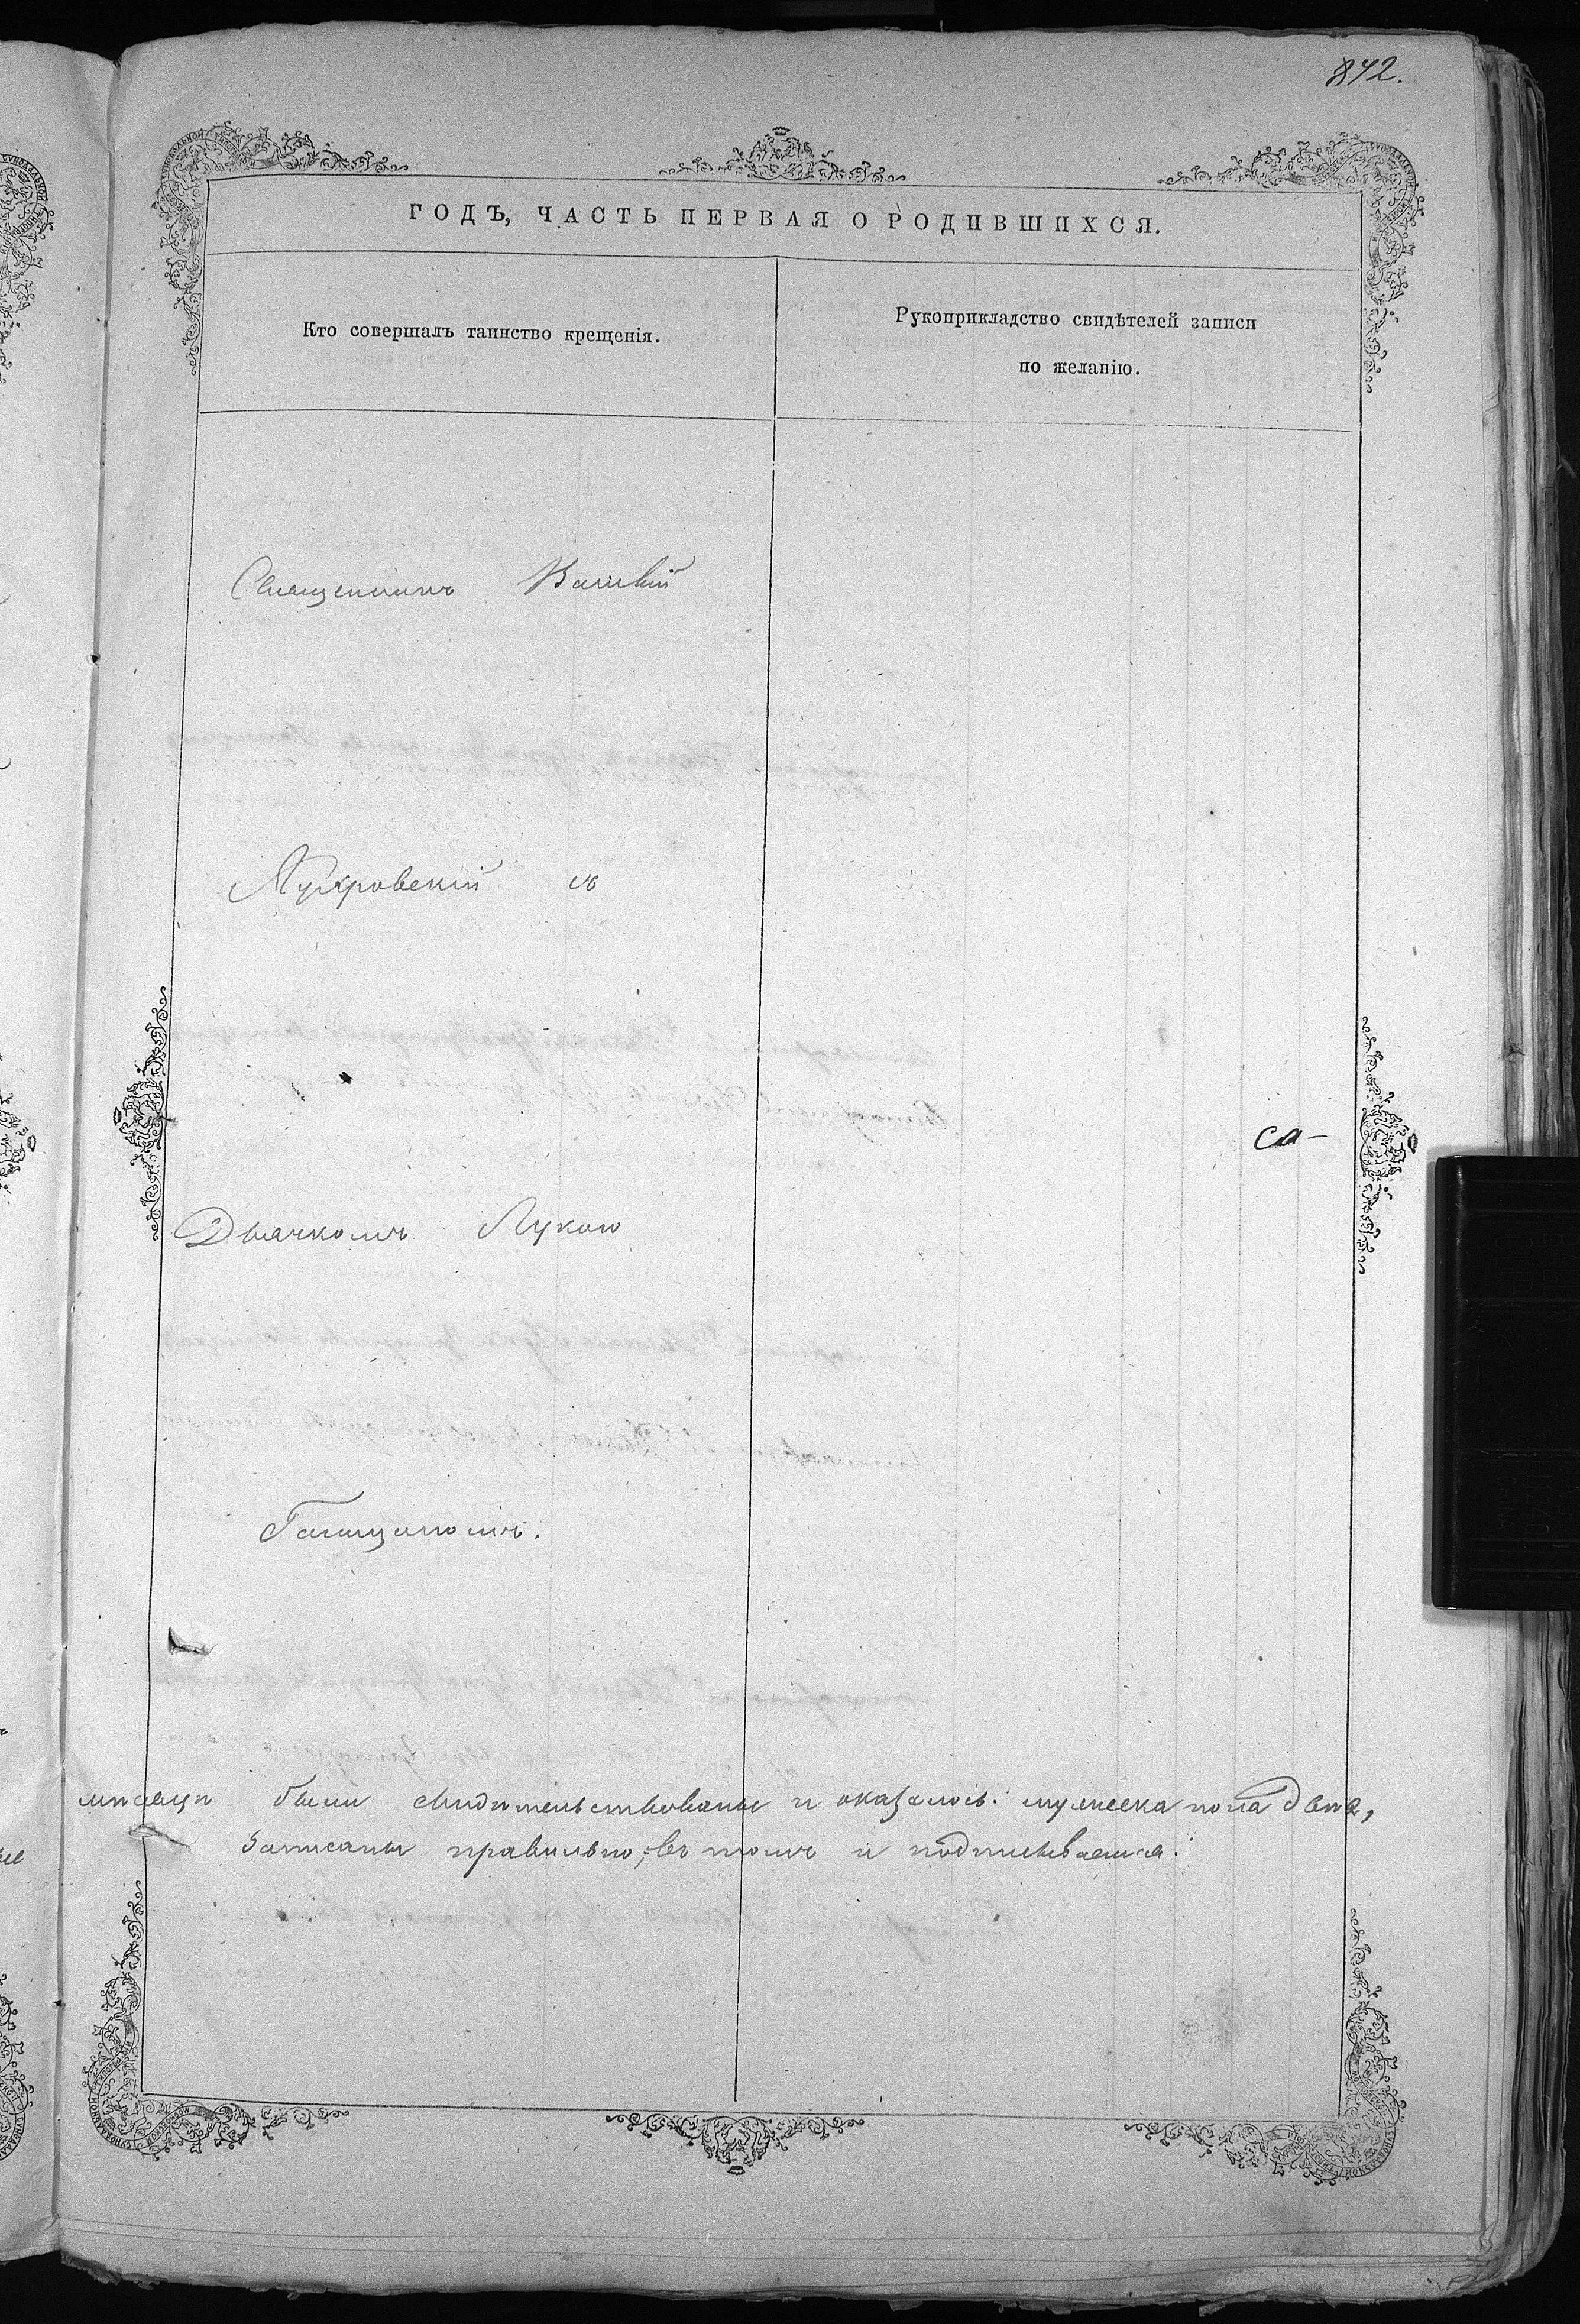 842.
ГОДЪ, ЧАСТЬ ПЕРВАЯ О РОДИВШИХСЯ.
Кто совершалъ таинство крещенія.
Рукоприкладство свидѣтелей записи
по желанію.
Священникъ
съ
са-
Дьячкомъ Лукою
Галициномъ.
мѣсяцѣ были свидѣтельствованы и оказалось: мужеска пола два,
записаны правильно, въ томъ и подписываемся: